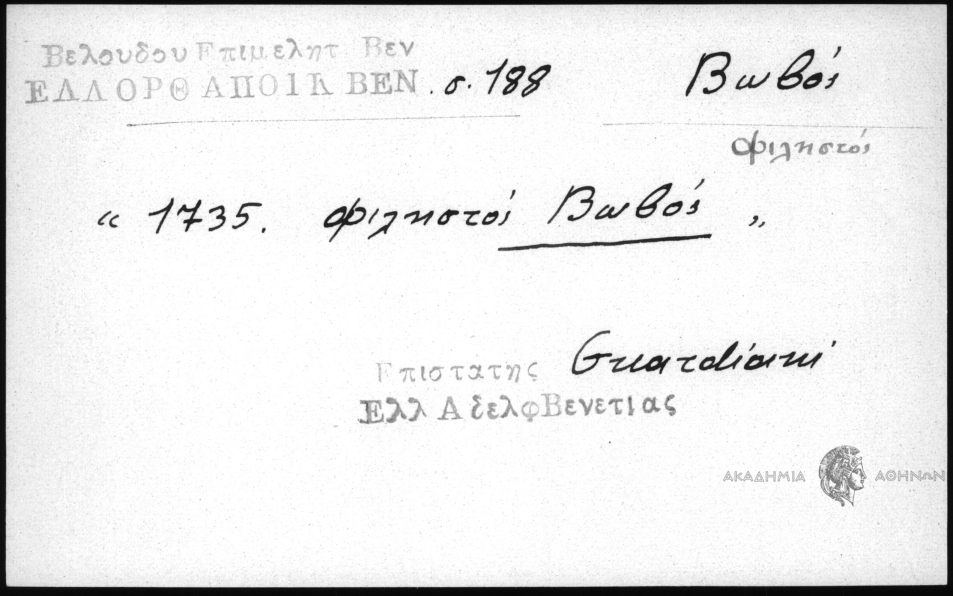 Βελουδου Επιμελητ Βεν
ΕΛΛ ΟΡΘ ΑΠΟΙΚ ΒΕΝ . σ. 188
Βωβός
Φιληστός
« 1735. Φιληστός Βωβός »
Επιστατης Guardiani
Ελλ Αδελφ Βενετιας
ΑΚΑΔΗΜΙΑ ΑΘΗΝΩΝ